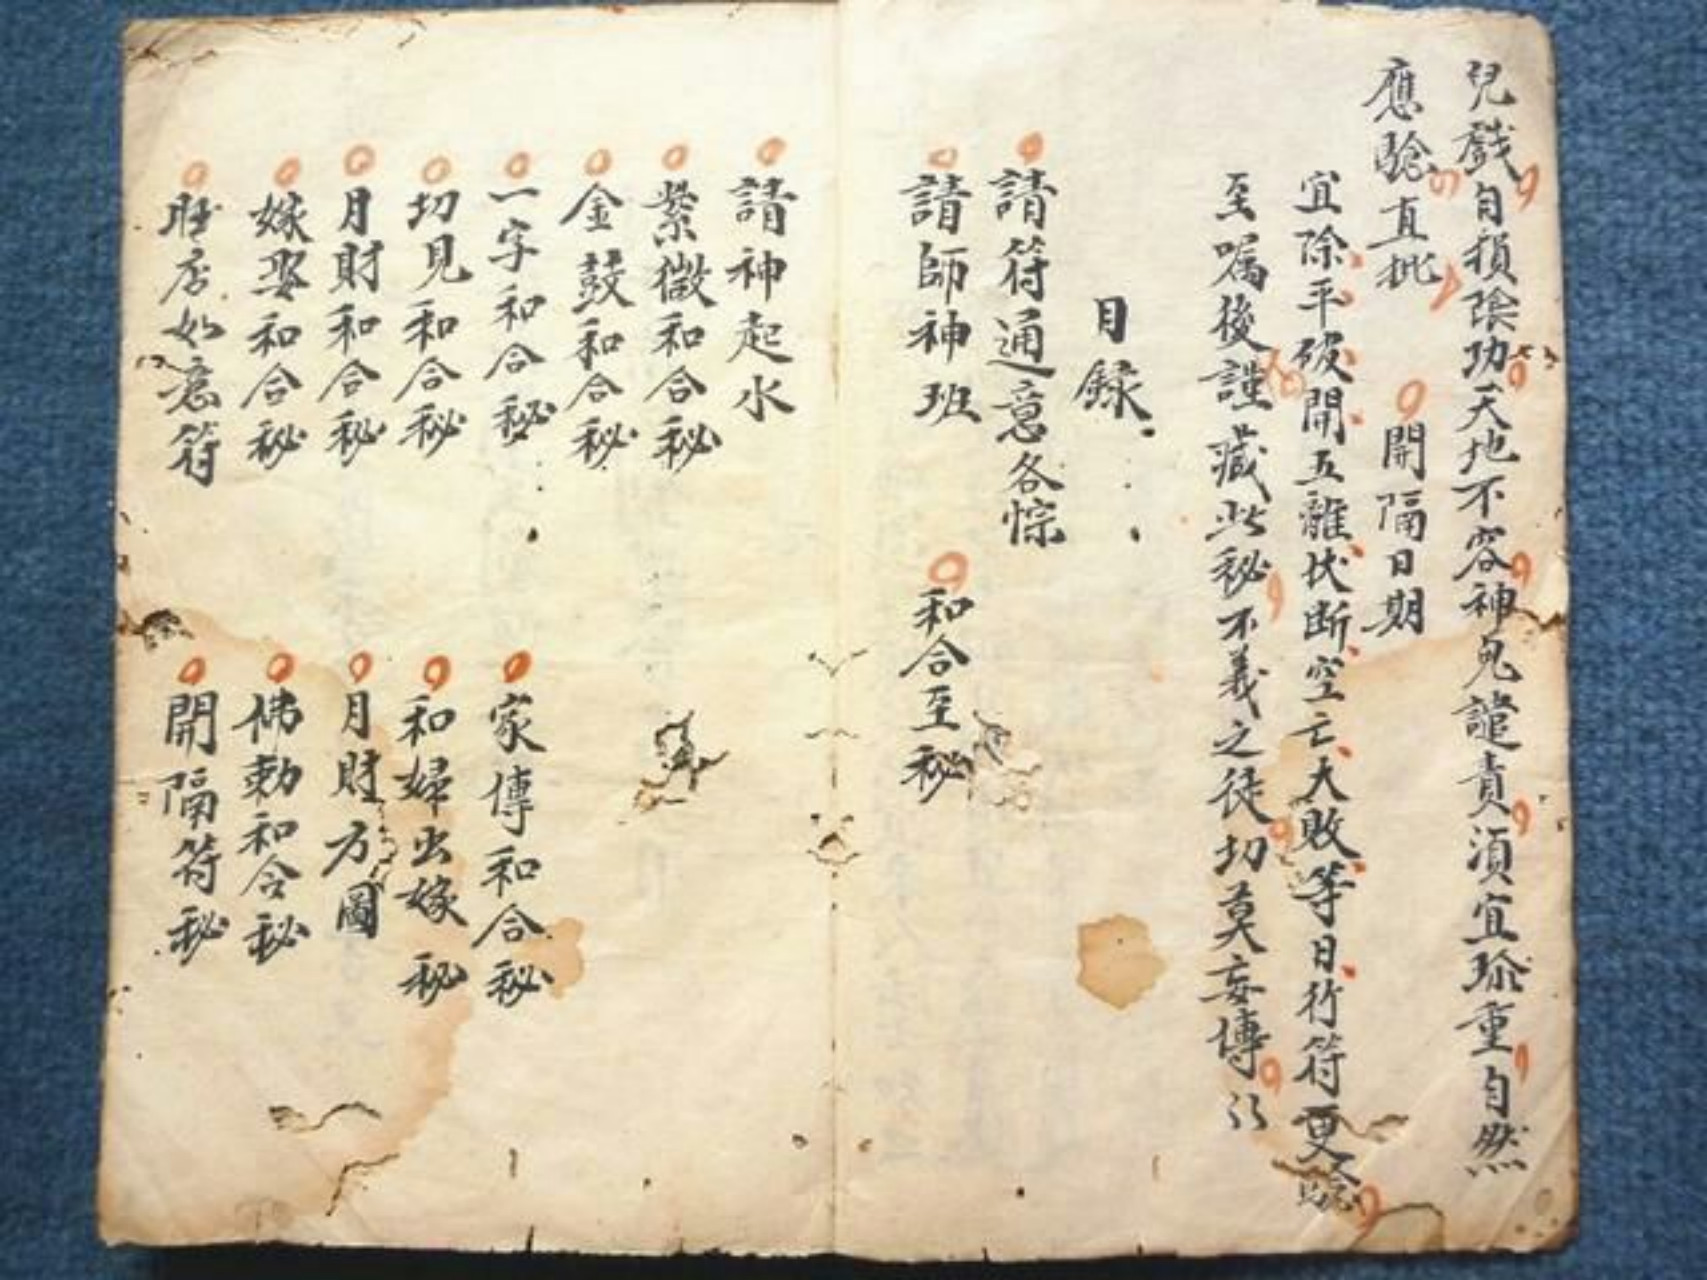 兒戲自損陰功天地不容神鬼譴責須宜珍重自然
應驗直批
開隔日期
宜除平破開五離伏断空亡大敗等日行符更驗
至嘱後謹藏此秘不義之徒切莫妄傳
目録
請符通意各悰
請師神班
和合至秘
請神起水
紫微和合秘
金鼓和合秘
一字和合秘
家傳和合秘
切見和合秘
和婦出嫁秘
月財和合秘
月財方圖
嫁娶和合秘
佛勅和合秘
店如意符
開隔符秘